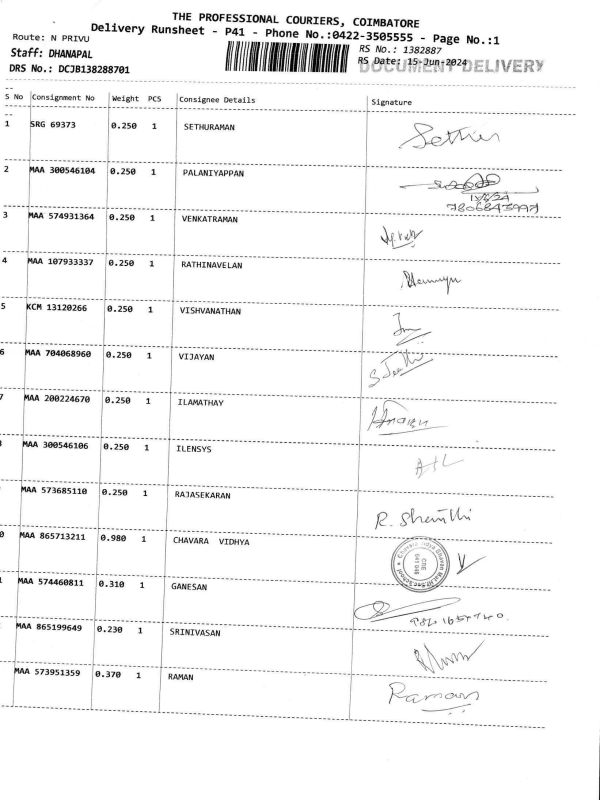 THE PROFESSIONAL COURIERS, COIMBATORE
Delivery Runsheet - P41 - Phone No.:0422-3505555 - Page No.:1
Route: N PRIVU
RS No.: 1382887
Staff: DHANAPAL
RS Date: 15-Jun-2024
DOCUMENT DELIVERY
DRS No.: DCJB138288701
S No Consignment No Weight PCS Consignee Details Signature
1 SRG 69373 0.250 1 SETHURAMAN
2 MAA 300546104 0.250 1 PALANIYAPPAN
3 MAA 574931364 0.250 1 VENKATRAMAN
4 MAA 107933337 0.250 1 RATHINAVELAN
5 KCM 13120266 0.250 1 VISHVANATHAN
6 MAA 704068960 0.250 1 VIJAYAN
7 MAA 200224670 0.250 1 ILAMATHAY
MAA 300546106 0.250 1 ILENSYS
MAA 573685110 0.250 1 RAJASEKARAN R. Shanthi
0 MAA 865713211 0.980 1 CHAVARA VIDHYA
MAA 574460811 0.310 1 GANESAN
MAA 865199649 0.230 1 SRINIVASAN
MAA 573951359 0.370 1 RAMAN Raman